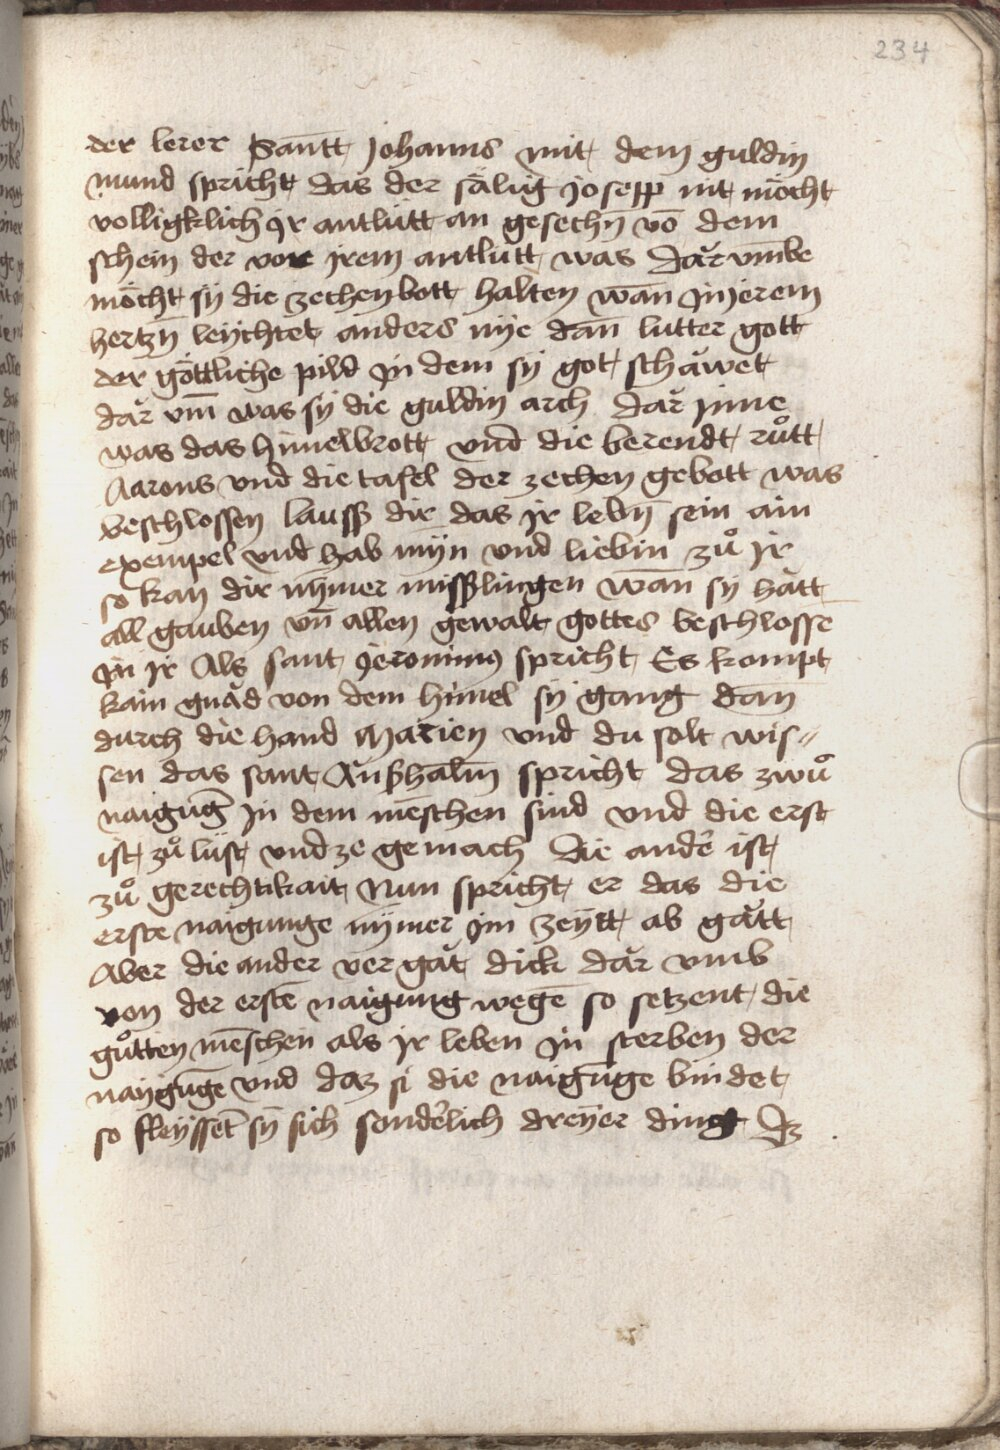 234
der lerer Sannt Johanns mit dem guldin
mund spricht das der sälig josepp nit möcht
volligklich yr antlütt an gesechn̄ vō dem
schein der vor jrem antlütt was Dar vm̄be
möcht sy die zechen bott halten wān jn jerem
hertzn̄ leychtet anders nye dan̄ lutter gott
der göttliche pild jn dem sy got schawet
dar vm̄ was sy die guldin arch dar jnne
was das himelbrott vnd die berendt růtt
Aarons vnd die tafel der zechen gebott was
beschlossen lauss dir das jr lebn̄ sein ain
exempel vnd hab myn vnd liebin zů jr
so kan dir nymer misslingen wān sy hatt
all gauben vn̄ allen gewalt gottes beschlosse
jn jr Als sant jeronimus spricht Es kompt
kain gnad von dem himel sy gang dan̄
durch die hand Marien vnd du solt wis〃
sen das sant Anßhalm̄ spricht das zwů
naigūg jn dem mēschen sind vnd die erst
ist zů lüst vnd ze gemach Die ander ist
zů gerechtikait Nun spricht er das die
erste naigunge nymer jm zeytt ab gatt
Aber die ander ver gat dick dar vmb
von der erstē naigung wegē so setzent die
gůtten mēschen als jr leben jn sterben der
naygūge vnd daz si die naigūge bindet
so fleyssēt sy sich sonderlich dreyer ding